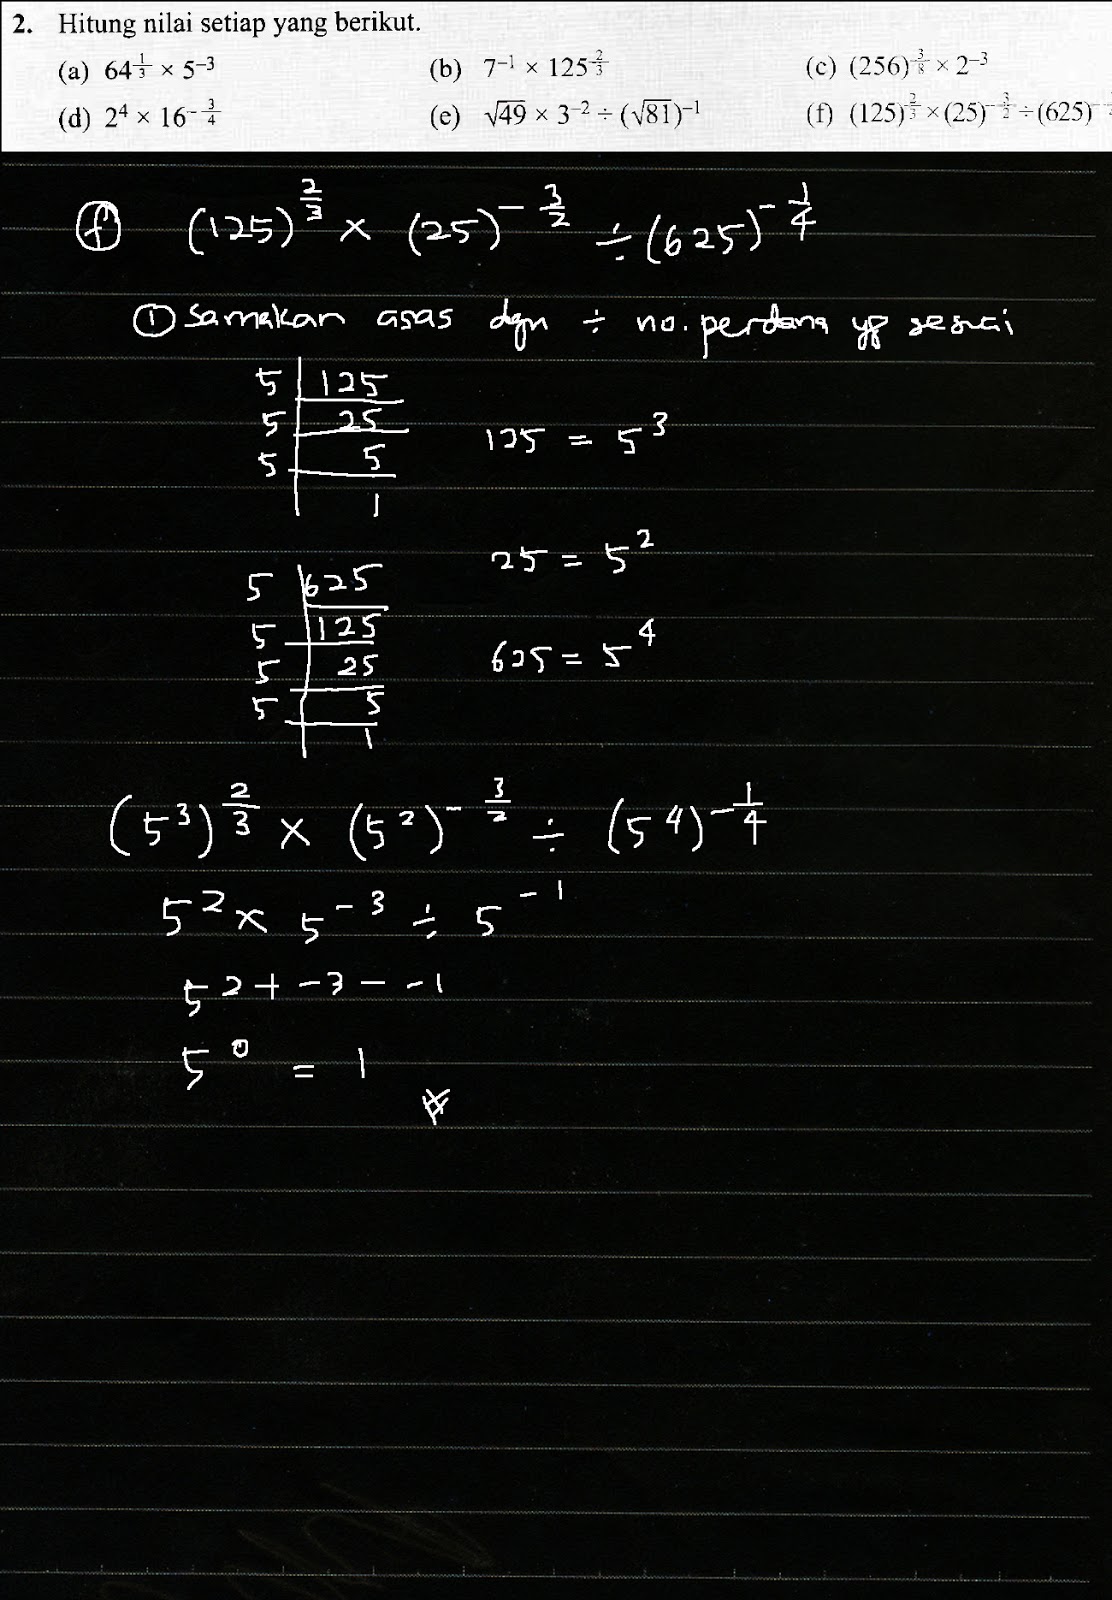 2. Hitung nilai setiap yang berikut.
(a) 64^(1/3) × 5^(-3) (b) 7^(-1) × 125^(2/3) (c) (256)^(3/8) × 2^(-3)
(d) 2^4 × 16^(-3/4) (e) √49 × 3^(-2) ÷ (√81)^(-1) (f) (125)^(2/3) × (25)^(-3/2) ÷ (625)^-
(f) (125)^(2/3) × (25)^(-3/2) ÷ (625)^(-1/4)
① Samakan asas dgn ÷ no. perdana yg sesuai
5 | 125
5 | 25
125 = 5^3
5 | 5
1
25 = 5^2
5 | 625
5 | 125
625 = 5^4
5 | 25
5 | 5
1
(5^3)^(2/3) × (5^2)^(-3/2) ÷ (5^4)^(-1/4)
5^2 × 5^(-3) ÷ 5^(-1)
5^(2 + -3 - -1)
5^0 = 1